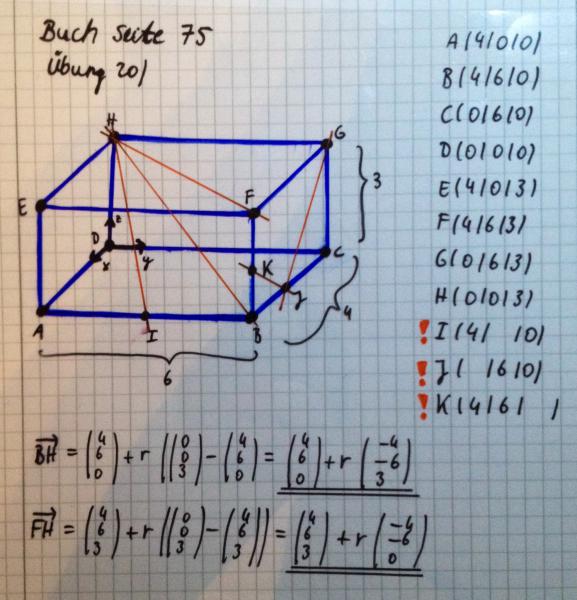 Buch Seite 75
Übung 20/
A(4|0|0)
B(4|6|0)
C(0|6|0)
D(0|0|0)
E(4|0|3)
F(4|6|3)
G(0|6|3)
H(0|0|3)
! I(4|  |0)
! J(  |6|0)
! K(4|6|  )
H
G
3
E
F
D
z
y
x
K
C
J
4
A
I
B
6
BH = (4 6 0) + r ((0 0 3) - (4 6 0) = (4 6 0) + r (-4 -6 3)
FH = (4 6 3) + r ((0 0 3) - (4 6 3)) = (4 6 3) + r (-4 -6 0)